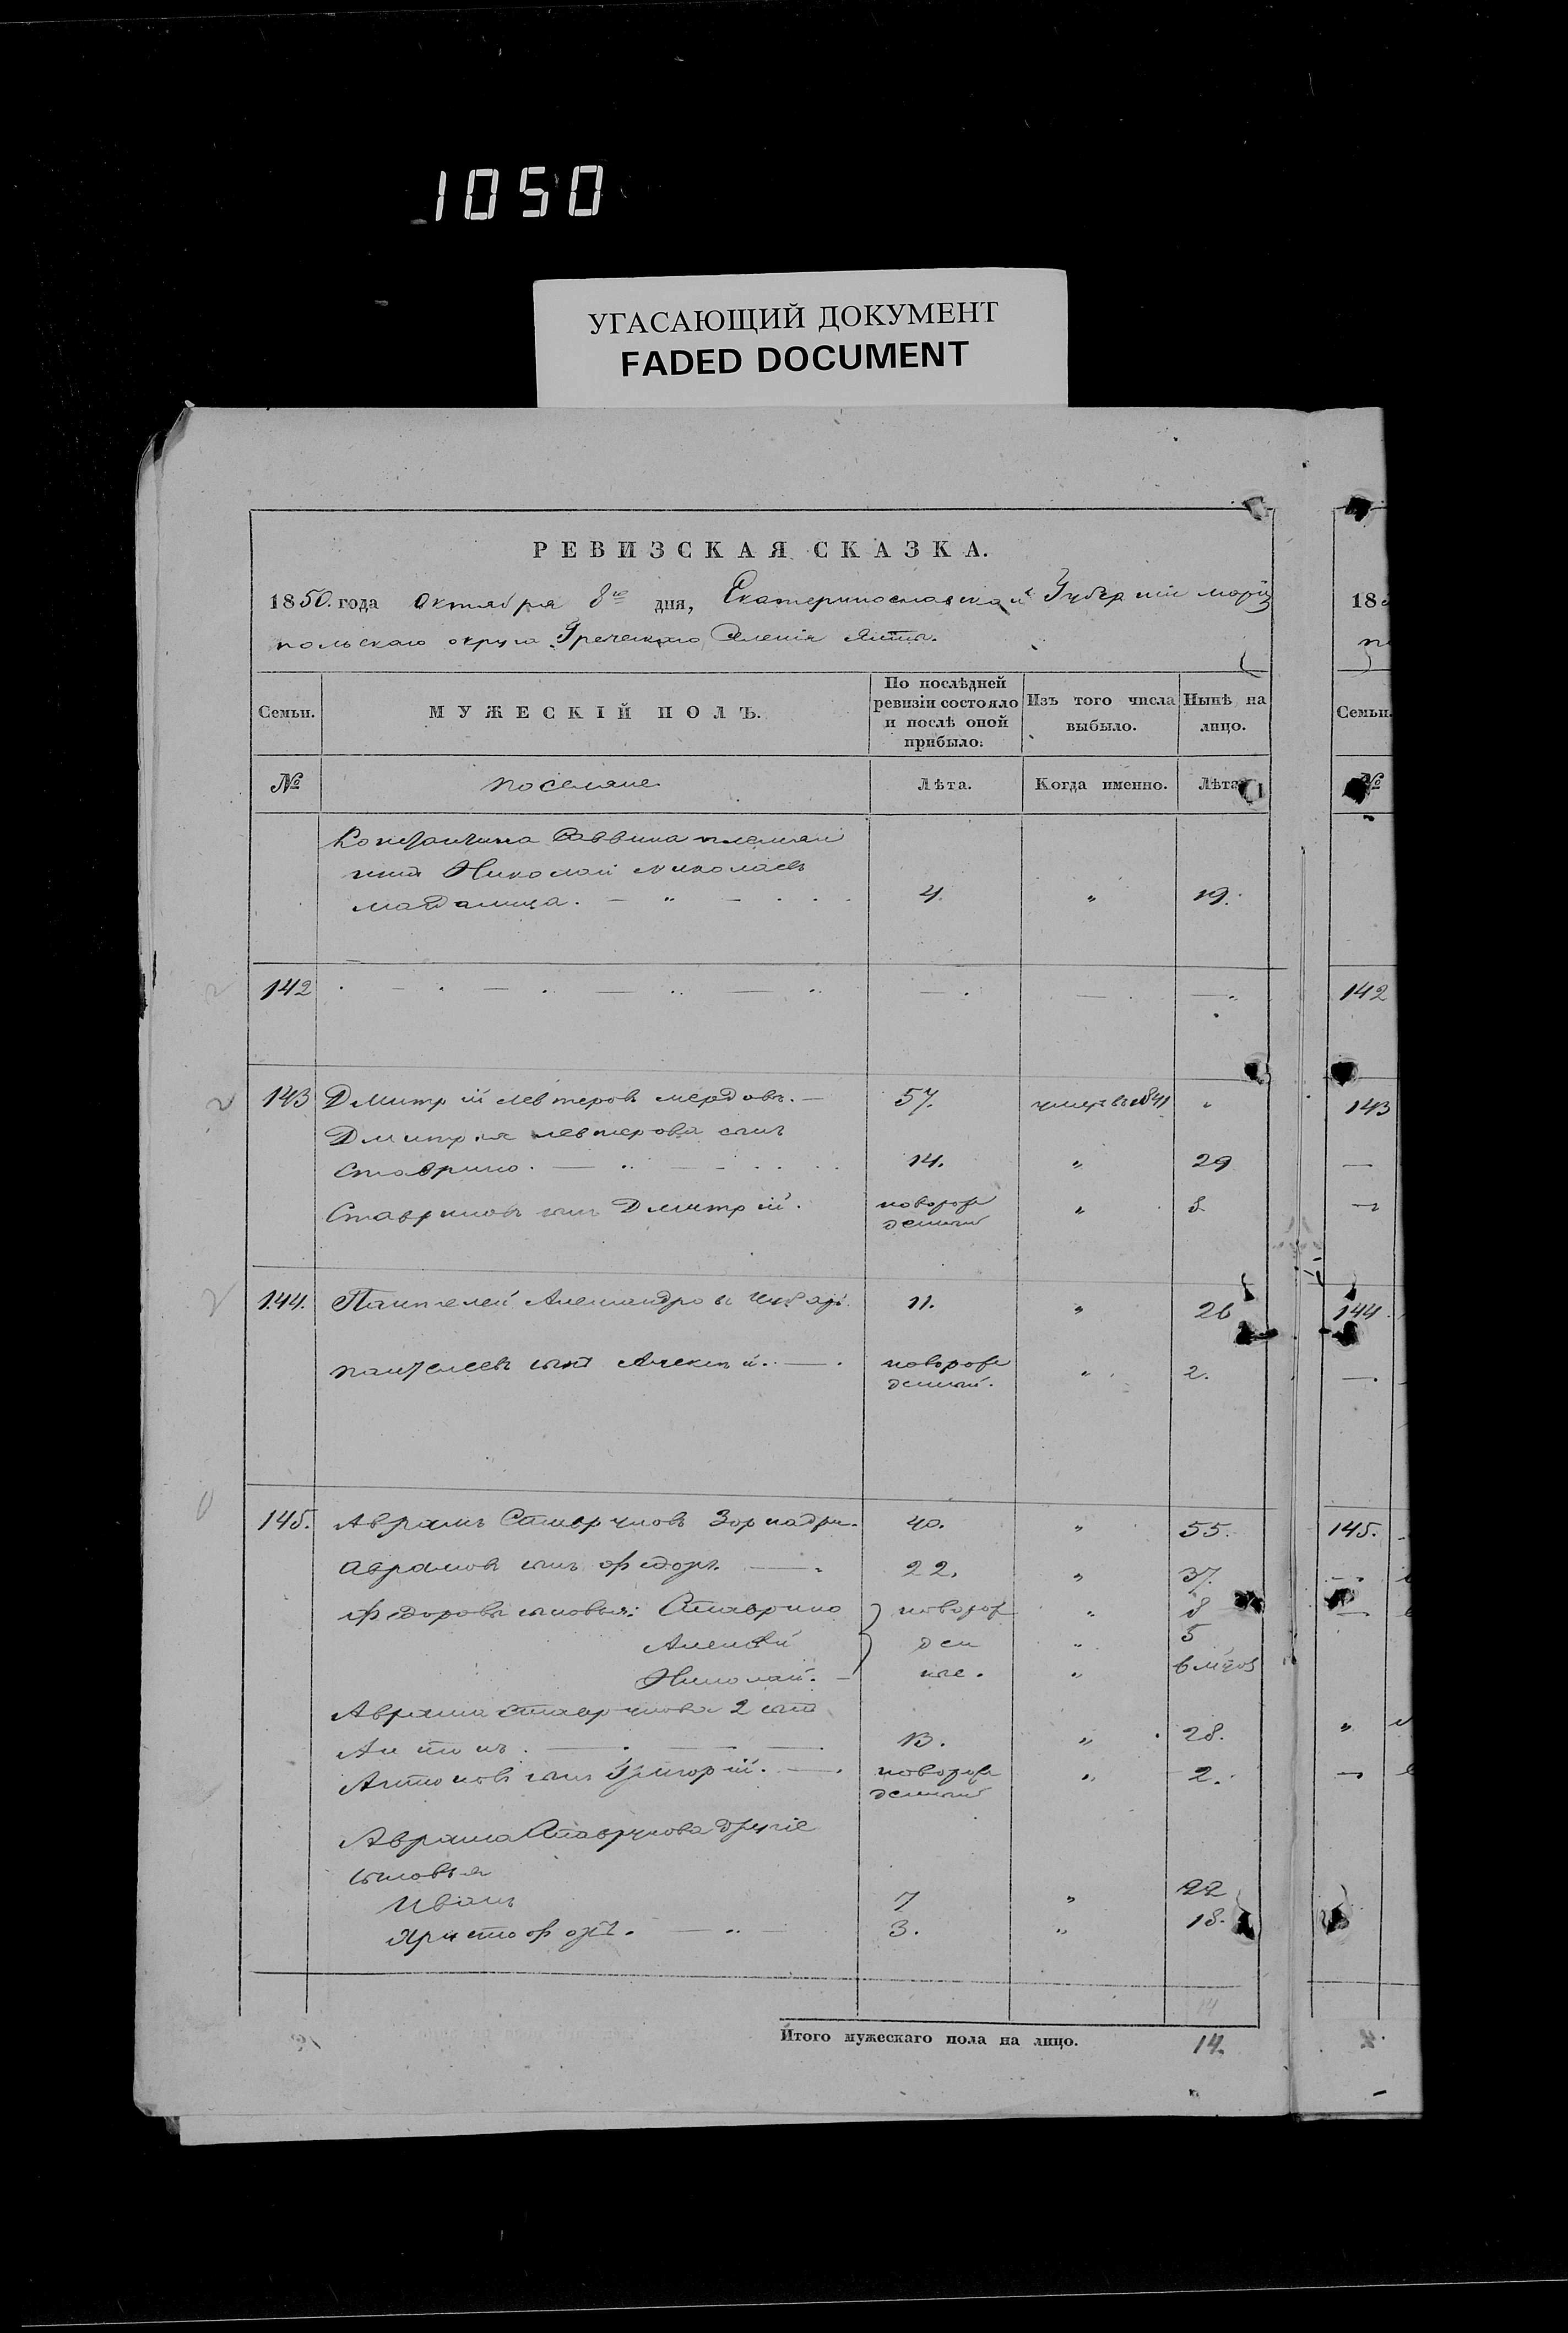 1050
УГАСАЮЩИЙ ДОКУМЕНТ
FADED DOCUMENT
РЕВИЗСКАЯ СКАЗКА.
1850. года Октября 8го дня, Екатеринославской Губерніи маріу
польскаго округа Греческаго Селенія Ялты.
Семьи.
МУЖЕСКІЙ ПОЛЪ.
По послѣдней ревизіи состояло и послѣ оной прибыло:
Изъ того числа выбыло.
Нынѣ на лицо.
№ поселяне Лѣта. Когда именно. Лѣта
Константина Саввина племян
никъ Николай Николаевъ
4. " 19.
142
143 Дмитрій Левтеровъ мердовъ. 57. умеръ въ 1841 "
Дмитрія Левтерова сынъ
Ставрино. 14. " 29
Ставриновъ сынъ Дмитрій. новорож денный " 8
144. Пантелей Александровъ 11. " 26
Пантелеевъ сынъ Алексѣй. новорож денный. " 2.
145. Аврамъ Ставриновъ 40. " 55.
Аврамовъ сынъ Федоръ. 22. " 37.
Федоровы сыновья: Ставрино новорож " 8
Алексѣй ден " 5
Николай. ные. " 6 мѣцов
Аврама Ставринова 2 сынъ
Антонъ. 13. " 28.
Антоновъ сынъ Григорій. новорож денный " 2.
Аврама Ставринова другіе
сыновья
Иванъ 7 " 22
Христофоръ. 3. " 18.
Итого мужескаго пола на лицо. 14.
18
Семьи.
№
142
143
144
145.